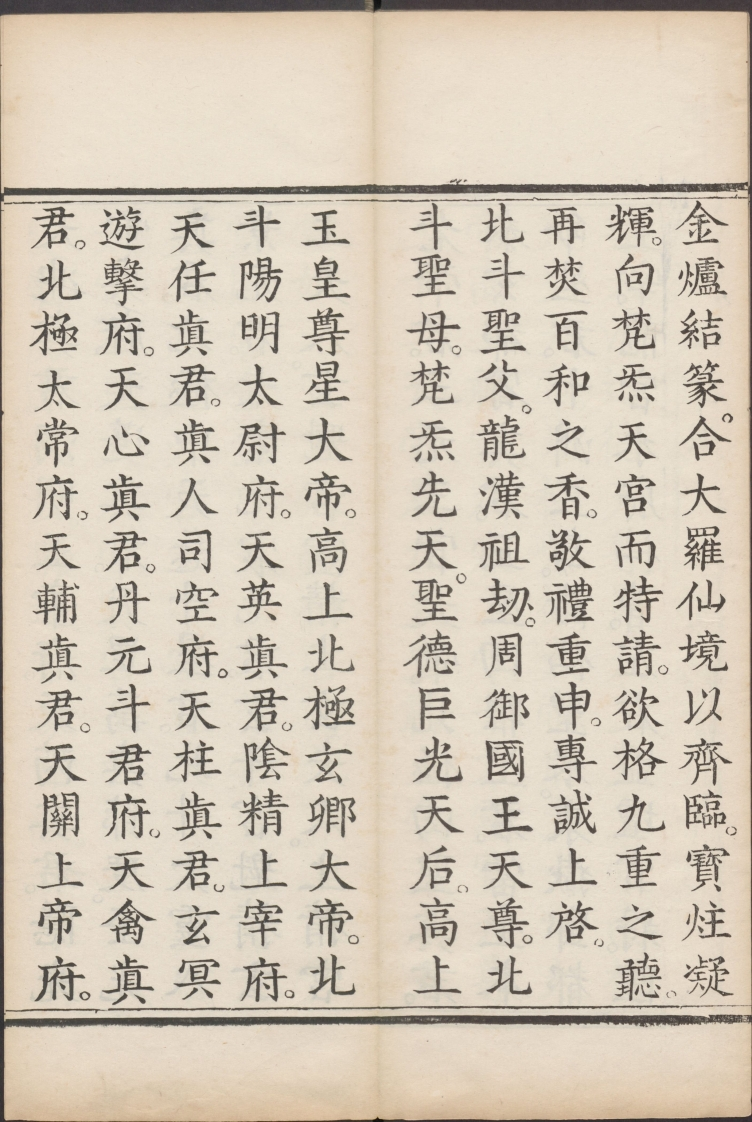 金爐結篆。合大羅仙境以齊臨。寶炷凝
輝。向梵炁天宮而特請。欲格九重之聽。
再焚百和之香。敬禮重申。專誠上啓。
北斗聖父。龍漢祖劫。周御國王天尊。北
斗聖母。梵炁先天。聖德巨光天后。高上
玉皇尊星大帝。高上北極玄卿大帝。北
斗陽明太尉府。天英眞君。陰精上宰府。
天任眞君。眞人司空府。天柱眞君。玄冥
遊擊府。天心眞君。丹元斗君府。天禽眞
君。北極太常府。天輔眞君。天關上帝府。